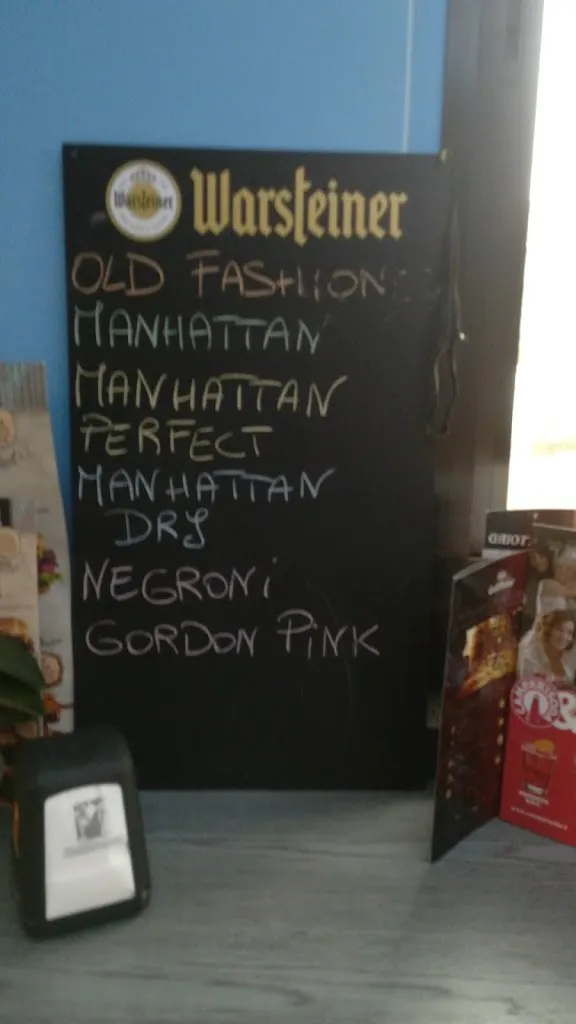 Warsteiner
Warsteiner
OLD FASHION
MANHATTAN
MANHATTAN
PERFECT
MANHATTAN
DRY
NEGRONi
GORDON PiNK